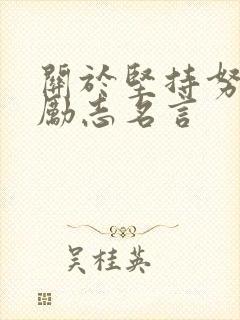 關於堅持努
勵志名言
吴桂英